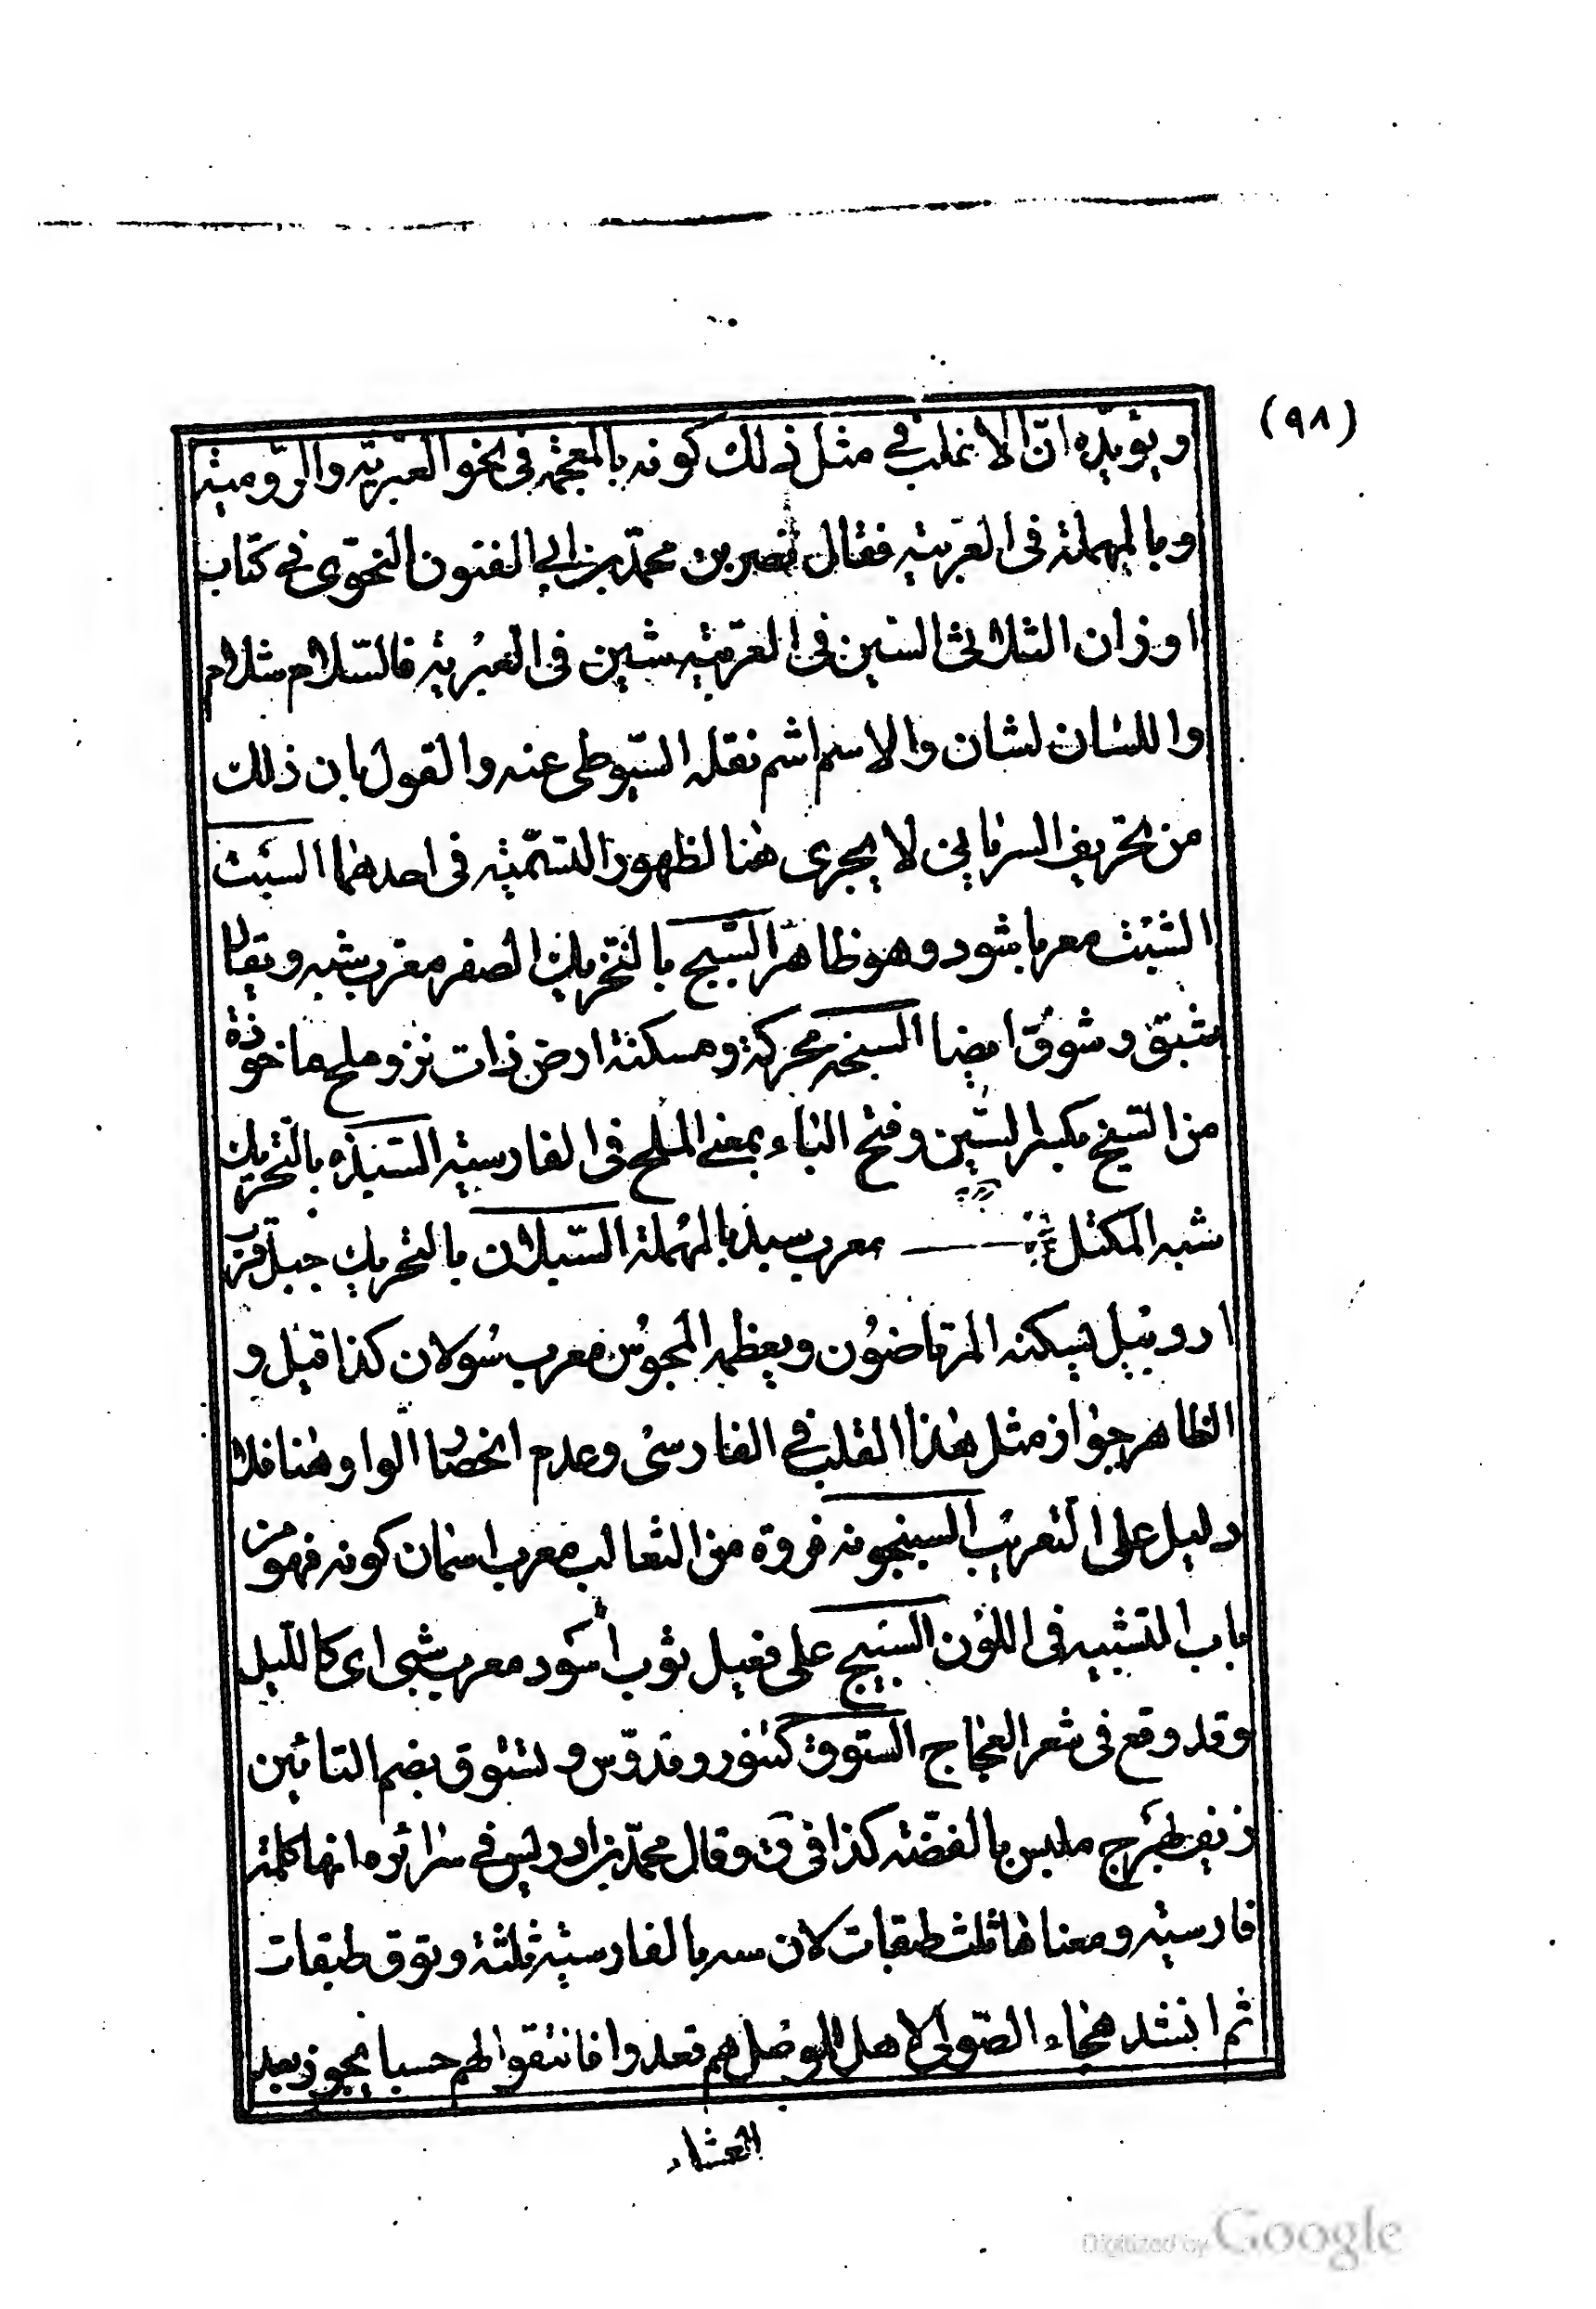 (٩٨)
ويؤيده ان الاغلب في مثل ذلك كونه بالمعجمة في نحو العبرية والرومية
وبالمهملة في العربية فقال نصر بن محمد بن ابي الفنون النحوي في كتاب
اوزان الثلاثي السين في العربية شين في العبرية فالسلام شلام
واللسان لشان والاسم اشم نقله السيوطي عنه والقول بان ذلك
من تحريف السرياني لا يجري هنا لظهور التسمية في احدهما السبت
الشبث معربا شود وهو ظاهر السبج بالتحريك الصفر معرب شبه ويقال
شبق وشوق ايضا السبخة محركة ومسكنة ارض ذات نز وملح ماخوذة
من السبخ بكسر السين وفتح الباء بمعنى الملح في الفارسية السبذه بالتحريك
شبه المكتل معرب سبد بالمهملة السبلان بالتحريك جبل قرب
اردبيل يسكنه المرتاضون ويعظمه المجوس معرب سولان كذا قيل و
الظاهر جواز مثل هذا القلب في الفارسي وعدم انحصار الواو هنا فلا
دليل على التعريب السبنجونه فروة من الثعالب معرب اسمان كونه فهو من
باب التشبيه في اللون السبيج على فعيل ثوب اسود معرب شبي اي كالليل
وقد وقع في شعر العجاج الستوق كتنور وقدوس وتستوق بضم التائين
زيف بهرج ملبس بالفضة كذا في ق وقال محمد بن ادريس في سرائره انها كلمة
فارسية ومعناها ثلث طبقات لان سه بالفارسية ثلثة وتوق طبقات
ثم انشد هجاء الصولي لاهل الموصل هم قعدوا فانتقوا لهم حسبا يجوز بعد
العشاء
Digitized by Google